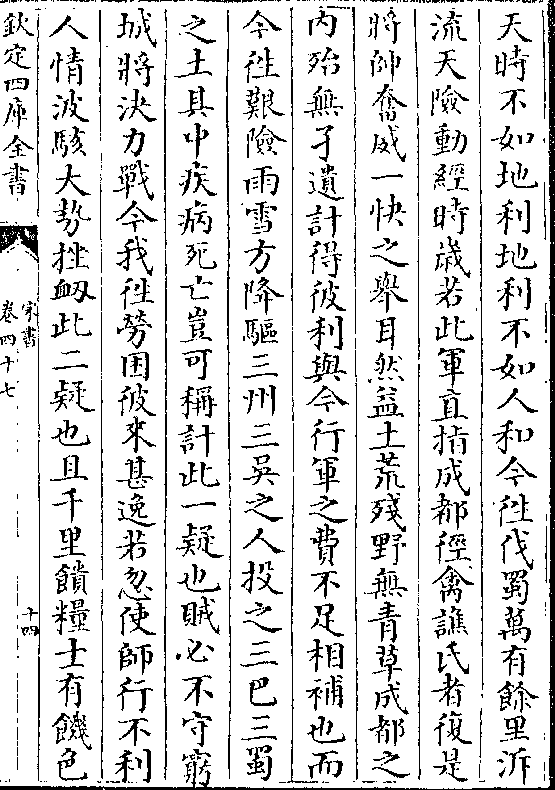 天時不如地利地利不如人和今徃伐蜀萬有餘里泝
流天險動經時歳若此軍直指成都徑禽譙氏者復是
將帥奮威一快之舉耳然益土荒殘野無青草成都之
内殆無孑遺計得彼利與今行軍之費不足相補也而
今徃艱險雨雪方降驅三州三吳之人投之三巴三蜀
之土其中疾病死亡豈可稱計此一疑也賊必不守窮
城將決力戰今我徃勞困彼來甚逸若忽使師行不利
人情波駭大勢挫衂此二疑也且千里饋糧士有饑色
欽定四庫全書
宋書
卷四十七
十四